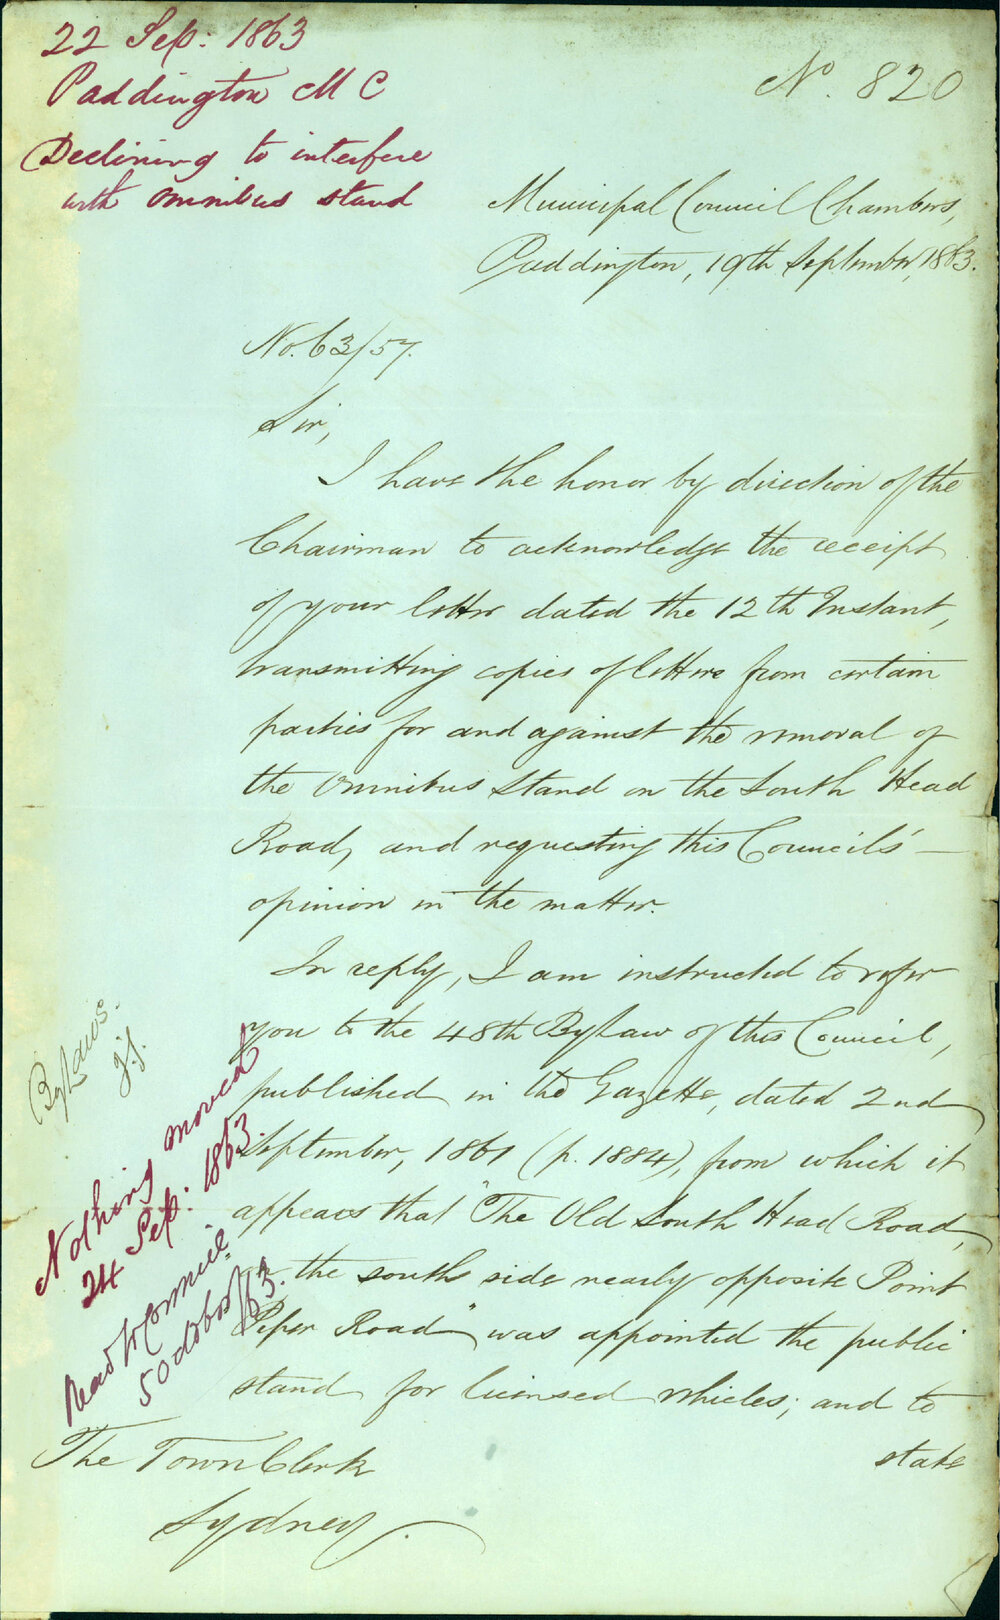 22 Sep: 1863
Paddington M C
Declining to interfere
with omnibus stand
No. 820
Municipal Council Chambers,
Paddington, 19th September, 1863.
No. 63/57.
Sir,
I have the honor by direction of the
Chairman to acknowledge the receipt
of your letter dated the 12th Instant,
transmitting copies of letters from certain
parties for and against the removal of
the Omnibus Stand on the South Head
Road, and requesting this Council's' —
opinion in the matter.
In reply, I am instructed to refer
you to the 48th By Law of this Council,
published in the Gazette, dated 2nd
September, 1861 (p. 1884), from which it
appears that "The Old South Head Road,
the south side nearly opposite Point
Piper Road" was appointed the public
stand for licensed vehicles; and to
state
By Laws.
J.J.
Nothing moved
24 Sep: 1863
Read W Commiee
5 October/63.
The Town Clerk
Sydney.